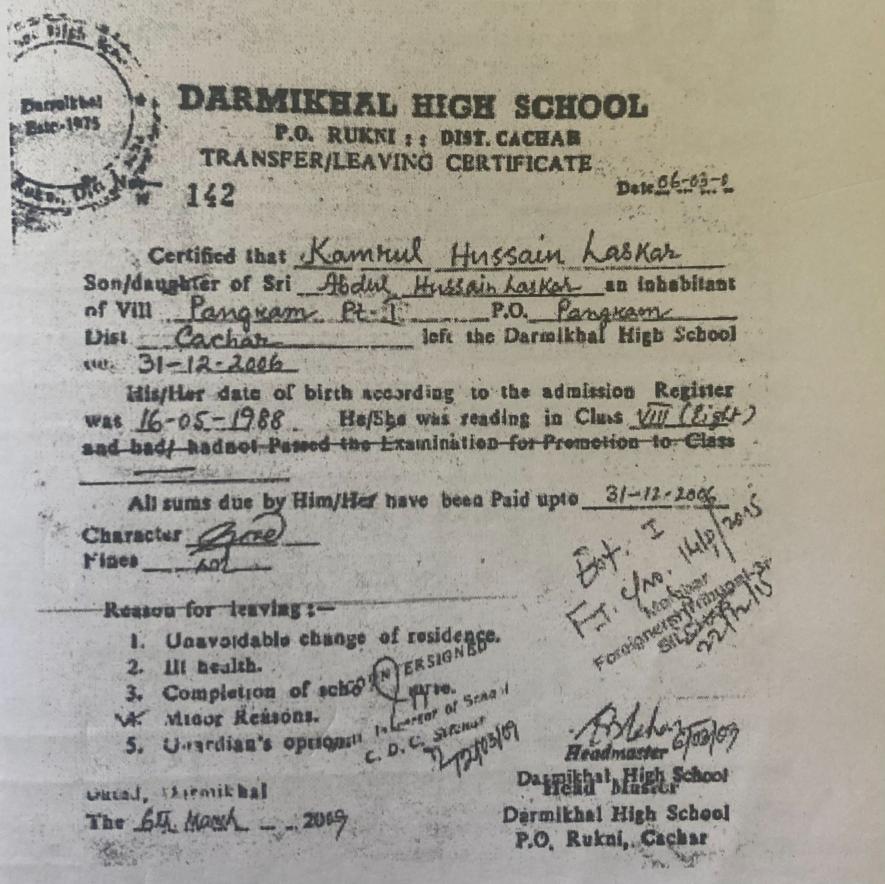 Darmikhal
Estc-1975
DARMIKHAL HIGH SCHOOL
P.O. RUKNI :: DIST. CACHAR
TRANSFER/LEAVING CERTIFICATE
142
Date 06-03-0
Certified that Kamrul Hussain Laskar
Son/daughter of Sri Abdul Hussain Laskar an inhabitant
of Vill Pangram Pt-I P.O. Pangram
Dist Cachar left the Darmikhal High School
31-12-2006
His/Her date of birth according to the admission Register
was 16-05-1988. He/She was reading in Class VIII (Eight)
and had/ hadnot Passed the Examination for Promotion to Class
All sums due by Him/Her have been Paid upto 31-12-2006
Character Good
Fines
Ext. I
F.T. C/No.
Member
Foreigners Tribunal
22/12/15
Reason for leaving :—
1. Unavoidable change of residence.
2. Ill health.
3. Completion of
4. Minor Reasons.
5. Guardian's option
COUNTERSIGNED
Inspector of School
C. D. C. Silchar
12/03/09
6/03/09
Headmaster
Darmikhal High School
Head Master
Darmikhal High School
P.O. Rukni, Cachar
Dated, Darmikhal
The 6th March 2009